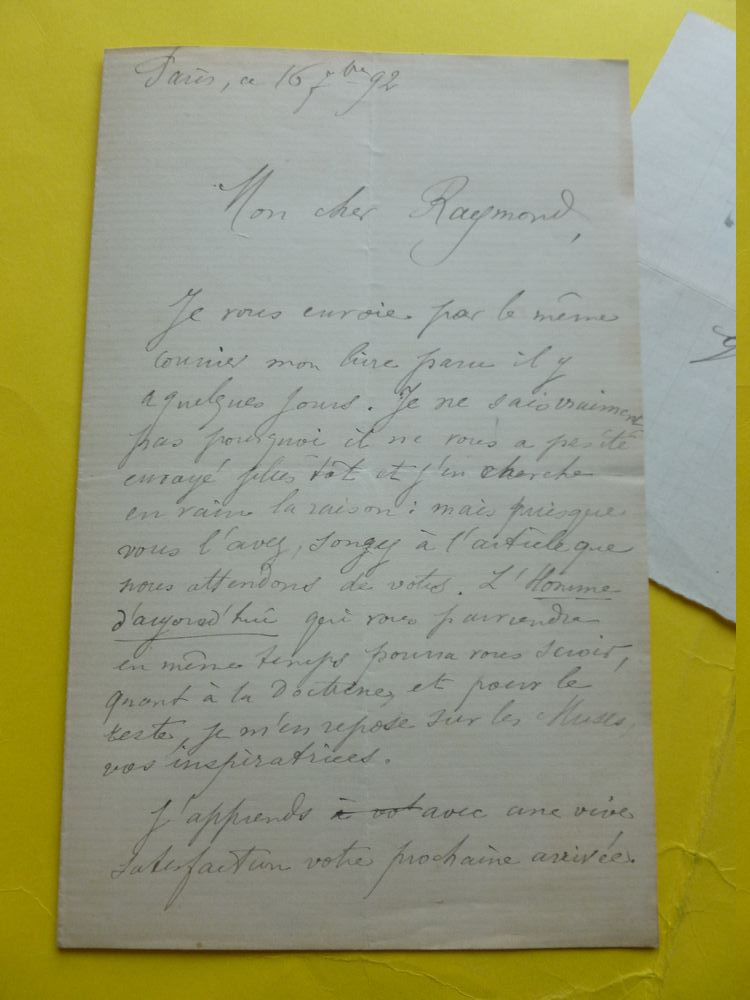 Paris, ce 16 7bre 92
Mon cher Raymond,
Je vous envoie par le même
courrier mon livre paru il y
a quelques jours. Je ne sais vraiment
pas pourquoi il ne vous a pas été
envoyé plus tôt et j'en cherche
en vain la raison : mais puisque
vous l'avez, songez à l'article que
nous attendons de vous. L'Homme
d'aujourd'hui qui vous parviendra
en même temps pourra vous servir,
quant à la Doctrine, et pour le
reste, je m'en repose sur les Muses,
vos inspiratrices.
J'apprends à vot avec une vive
satisfaction votre prochaine arrivée.